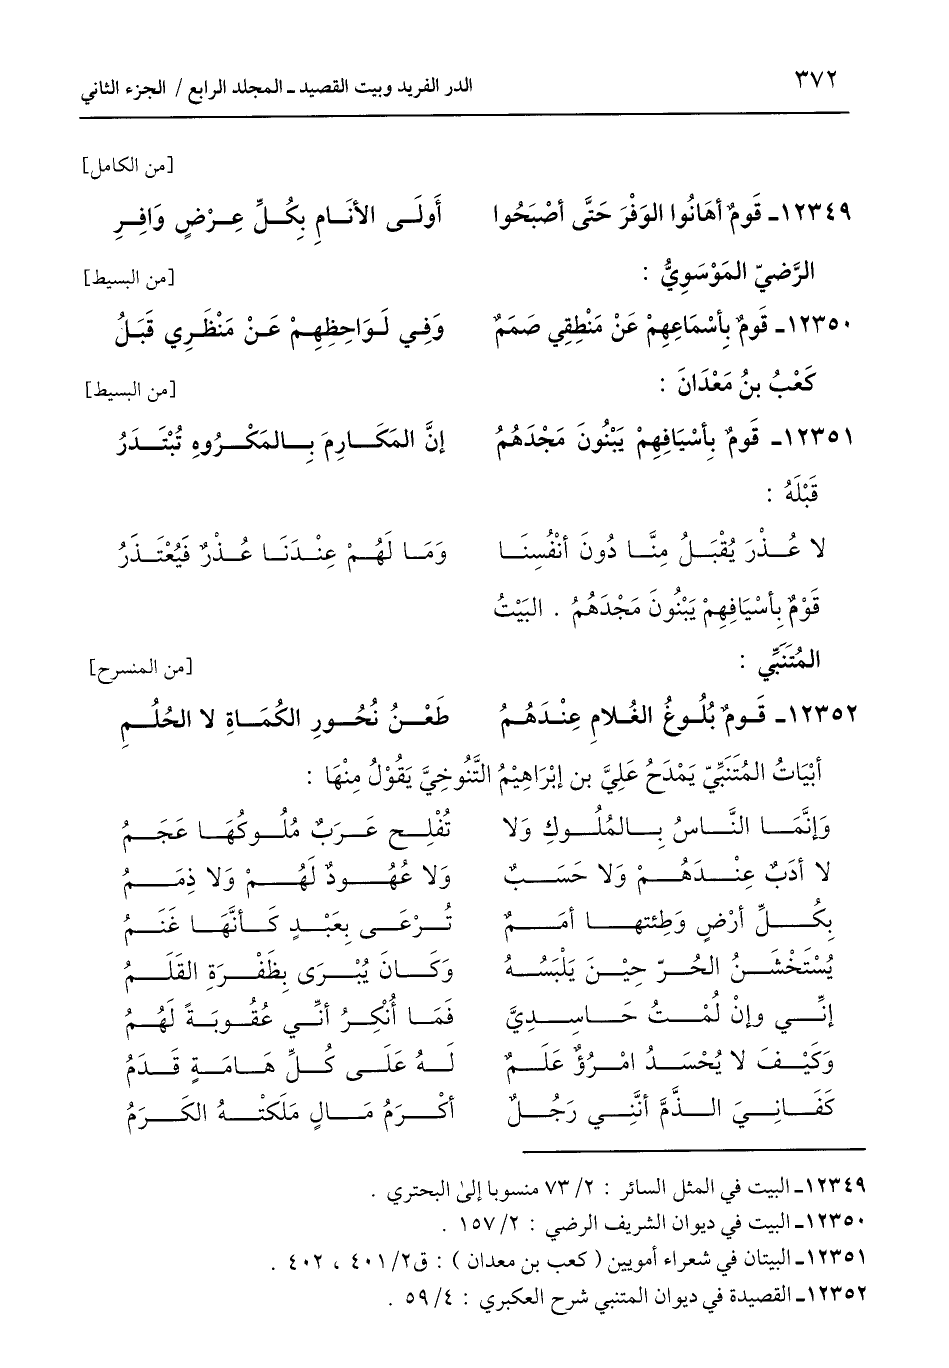 ٣٧٢ الدر الفريد وبيت القصيد ـ المجلد الرابع / الجزء الثاني
[من الكامل]
١٢٣٤٩ـ قَومٌ أهَانُوا الوَفْرَ حَتَّى أصْبَحُوا أَولَى الأنَامِ بِكُلِّ عِرْضٍ وَافِرِ
الرَّضيّ المَوْسَوِيُّ : [من البسيط]
١٢٣٥٠ـ قَومٌ بِأسْمَاعِهِمْ عَنْ مَنْطِقِي صَمَمٌ وَفِي لَوَاحِظِهِمْ عَنْ مَنْظَرِي قَبَلُ
كَعْبُ بنُ مَعْدَانَ : [من البسيط]
١٢٣٥١ـ قَومٌ بِأسْيَافِهِمْ يَبْنُونَ مَجْدَهُمُ إنَّ المَكَارِمَ بِالمَكْرُوهِ تُبْتَدَرُ
قَبْلَهُ :
لا عُذْرَ يُقْبَلُ مِنَّا دُونَ أنْفُسِنَا وَمَا لَهُمْ عِنْدَنَا عُذْرٌ فَيُعْتَذَرُ
قَوْمٌ بِأسْيَافِهِمْ يَبْنُونَ مَجْدَهُمُ . البَيْتُ
المُتَنَبِّي : [من المنسرح]
١٢٣٥٢ـ قَومٌ بُلُوغُ الغُلامِ عِنْدَهُمُ طَعْنُ نُحُورِ الكُمَاةِ لا الحُلُمِ
أبْيَاتُ المُتَنَبِّيّ يَمْدَحُ عَلِيَّ بن إبْرَاهِيْمُ التَّنُوخِيَّ يَقُوْلُ مِنْهَا :
وَإنَّمَا النَّاسُ بِالمُلُوكِ وَلا تُفْلِح عَرَبٌ مُلُوكُهَا عَجَمُ
لا أدَبٌ عِنْدَهُمْ وَلا حَسَبٌ وَلا عُهُودٌ لَهُمْ وَلا ذِمَمُ
بِكُلِّ أرْضٍ وَطِئتها أمَمٌ تُرْعَى بِعَبْدٍ كَأنَّهَا غَنَمُ
يُسْتَخْشَنُ الخُرّ حِيْنَ يَلْبَسُهُ وَكَانَ يُبْرَى بِظَفْرَةِ القَلَمُ
إنِّي وإنْ لُمْتُ حَاسِدِيَّ فَمَا أُنْكِرُ أنِّي عُقُوبَةً لَهُمُ
وَكَيْفَ لا يُحْسَدُ امْرُؤٌ عَلَمٌ لَهُ عَلَى كُلِّ هَامَةٍ قَدَمُ
كَفَانِيَ الذَّمَّ أنَّنِي رَجُلٌ أكْرَمُ مَالٍ مَلَكَتْهُ الكَرَمُ
١٢٣٤٩ـ البيت في المثل السائر : ٢/ ٧٣ منسوبا إلى البحتري .
١٢٣٥٠ـ البيت في ديوان الشريف الرضي : ٢/ ١٥٧ .
١٢٣٥١ـ البيتان في شعراء أمويين ( كعب بن معدان ) : ق٢/ ٤٠١ ، ٤٠٢ .
١٢٣٥٢ـ القصيدة في ديوان المتنبي شرح العكبري : ٤/ ٥٩ .